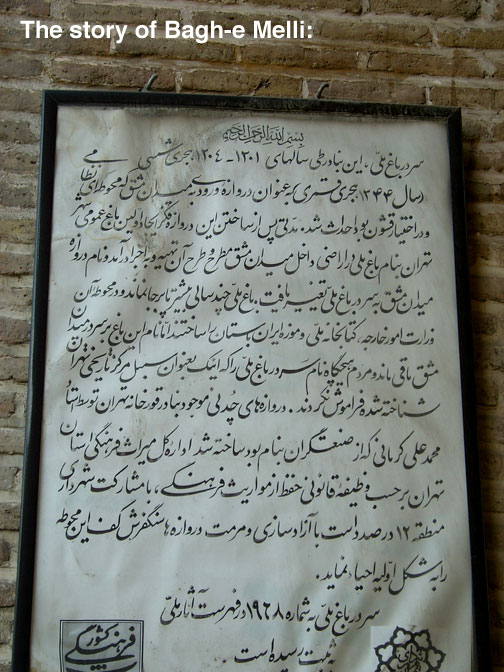 The story of Bagh-e Melli:
بسم الله الرحمن الرحیم
سر در باغ ملی، این بنا در طی سالهای ۱۳۰۱-۱۳۰۴ هجری شمسی
(سال ۱۳۴۴ هجری قمری) به عنوان دروازه ورودی میدان مشق که محوطه ای نظامی
و در اختیار قشون بود احداث شد. مدتی پس از ساختن این دروازه فکر ایجاد اولین باغ عمومی شهر
تهران بنام باغ ملی در اراضی داخل میدان مشق مطرح و طرح آن تهیه و به اجرا درآمد و نام دروازه
میدان مشق به سر در باغ ملی تغییر یافت. باغ ملی چند سالی بیشتر پابرجا نماند و در محوطه آن
وزارت امور خارجه، کتابخانه ملی و موزه ایران باستان را ساختند اما نام این باغ بر سر در میدان
مشق باقی ماند و مردم هیچگاه نام سر در باغ ملی را که اینک بعنوان سمبل مرکز تاریخی تهران
شناخته شده فراموش نکردند. دروازه های چدنی موجود بنا در قورخانه تهران توسط استاد
محمد علی کرمانی که از صنعتگران بنام بود ساخته شد اداره کل میراث فرهنگی استان
تهران بر حسب وظیفه قانونی حفظ از مواریث فرهنگی، با مشارکت شهرداری
منطقه ۱۲ در صدد است با آزادسازی و مرمت دروازه ها سنگفرش کف این محوطه
را به شکل اولیه احیاء نماید.
سر در باغ ملی به شماره ۱۹۶۸ در فهرست آثار ملی
به ثبت رسیده است.